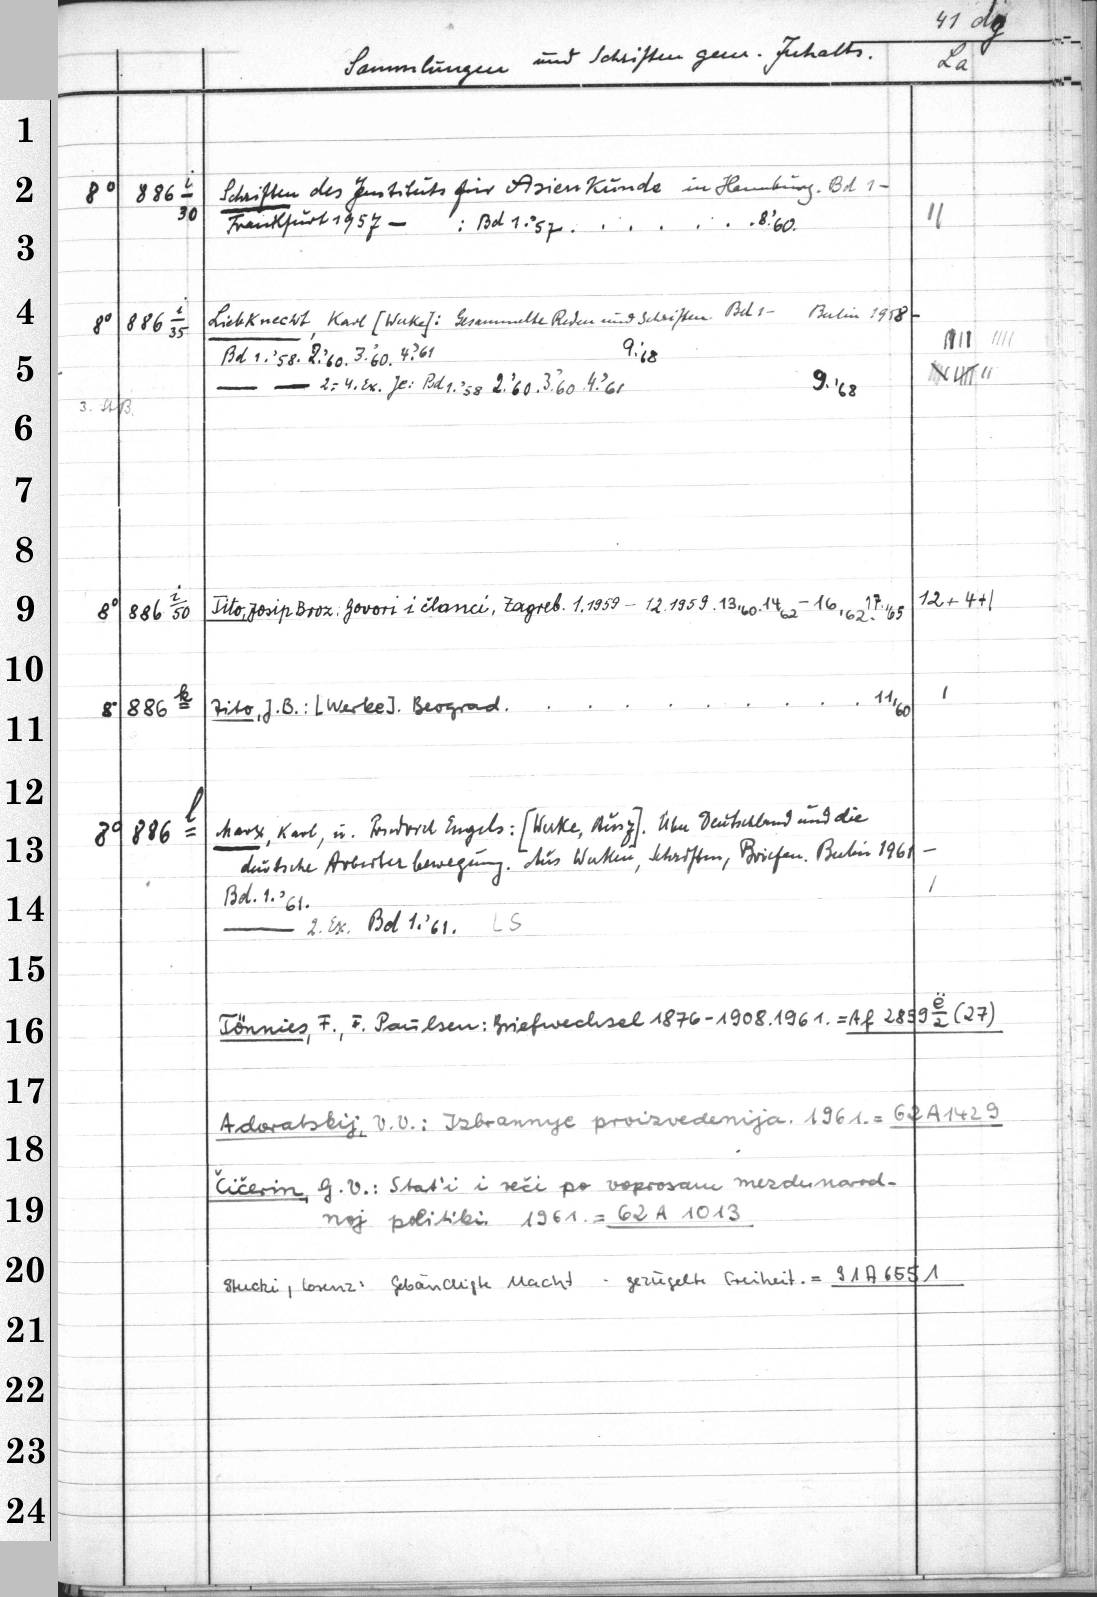 41 dg
Sammlungen und Schriften gem. Inhalts. La
1
2 8° 886 i/30 Schriften des Instituts für Asienkunde in Hamburg. Bd 1-
Frankfurt 1957 — : Bd 1.'57. . . . . . . 8.'60. II
3
4 8° 886 i/35 Liebknecht, Karl [Werke]: Gesammelte Reden und Schriften. Bd 1- Berlin 1958-
Bd 1.'58. 2.'60. 3.'60. 4.'61 9.'68 IIII IIII
5 — — 2.-4. Ex. Je: Bd 1.'58 2.'60. 3.'60 4.'61 9.'68
3. St B.
6
7
8
9 8° 886 i/50 Tito, Josip Broz: Govori i članci, Zagreb. 1.1959 - 12.1959. 13,'60. 14,'62 - 16,'62. 17.'65 12 + 4 + 1
10
8° 886 k Tito, J.B.: [Werke]. Beograd. . . . . . . . . . 11,'60 I
11
12
8° 886 l Marx, Karl, u. Friedrich Engels: [Werke, Ausz]. Über Deutschland und die
13 deutsche Arbeiterbewegung. Aus Werken, Schriften, Briefen. Berlin 1961 —
Bd. 1.'61. I
14 — 2. Ex. Bd 1.'61. LS
15
16 Tönnies, F., F. Paulsen: Briefwechsel 1876-1908. 1961. = Af 2859 ë/2 (27)
17
Adoratskij, V.V.: Izbrannye proizvedenija. 1961. = 62 A 1429
18
Čičerin, G.V.: Stat'i i reči po voprosam mezdunarod-
19 noj politiki. 1961. = 62 A 1013
20 Stucki, Lorenz: Gebändigte Macht - gezügelte Freiheit. = 91 A 6551
21
22
23
24